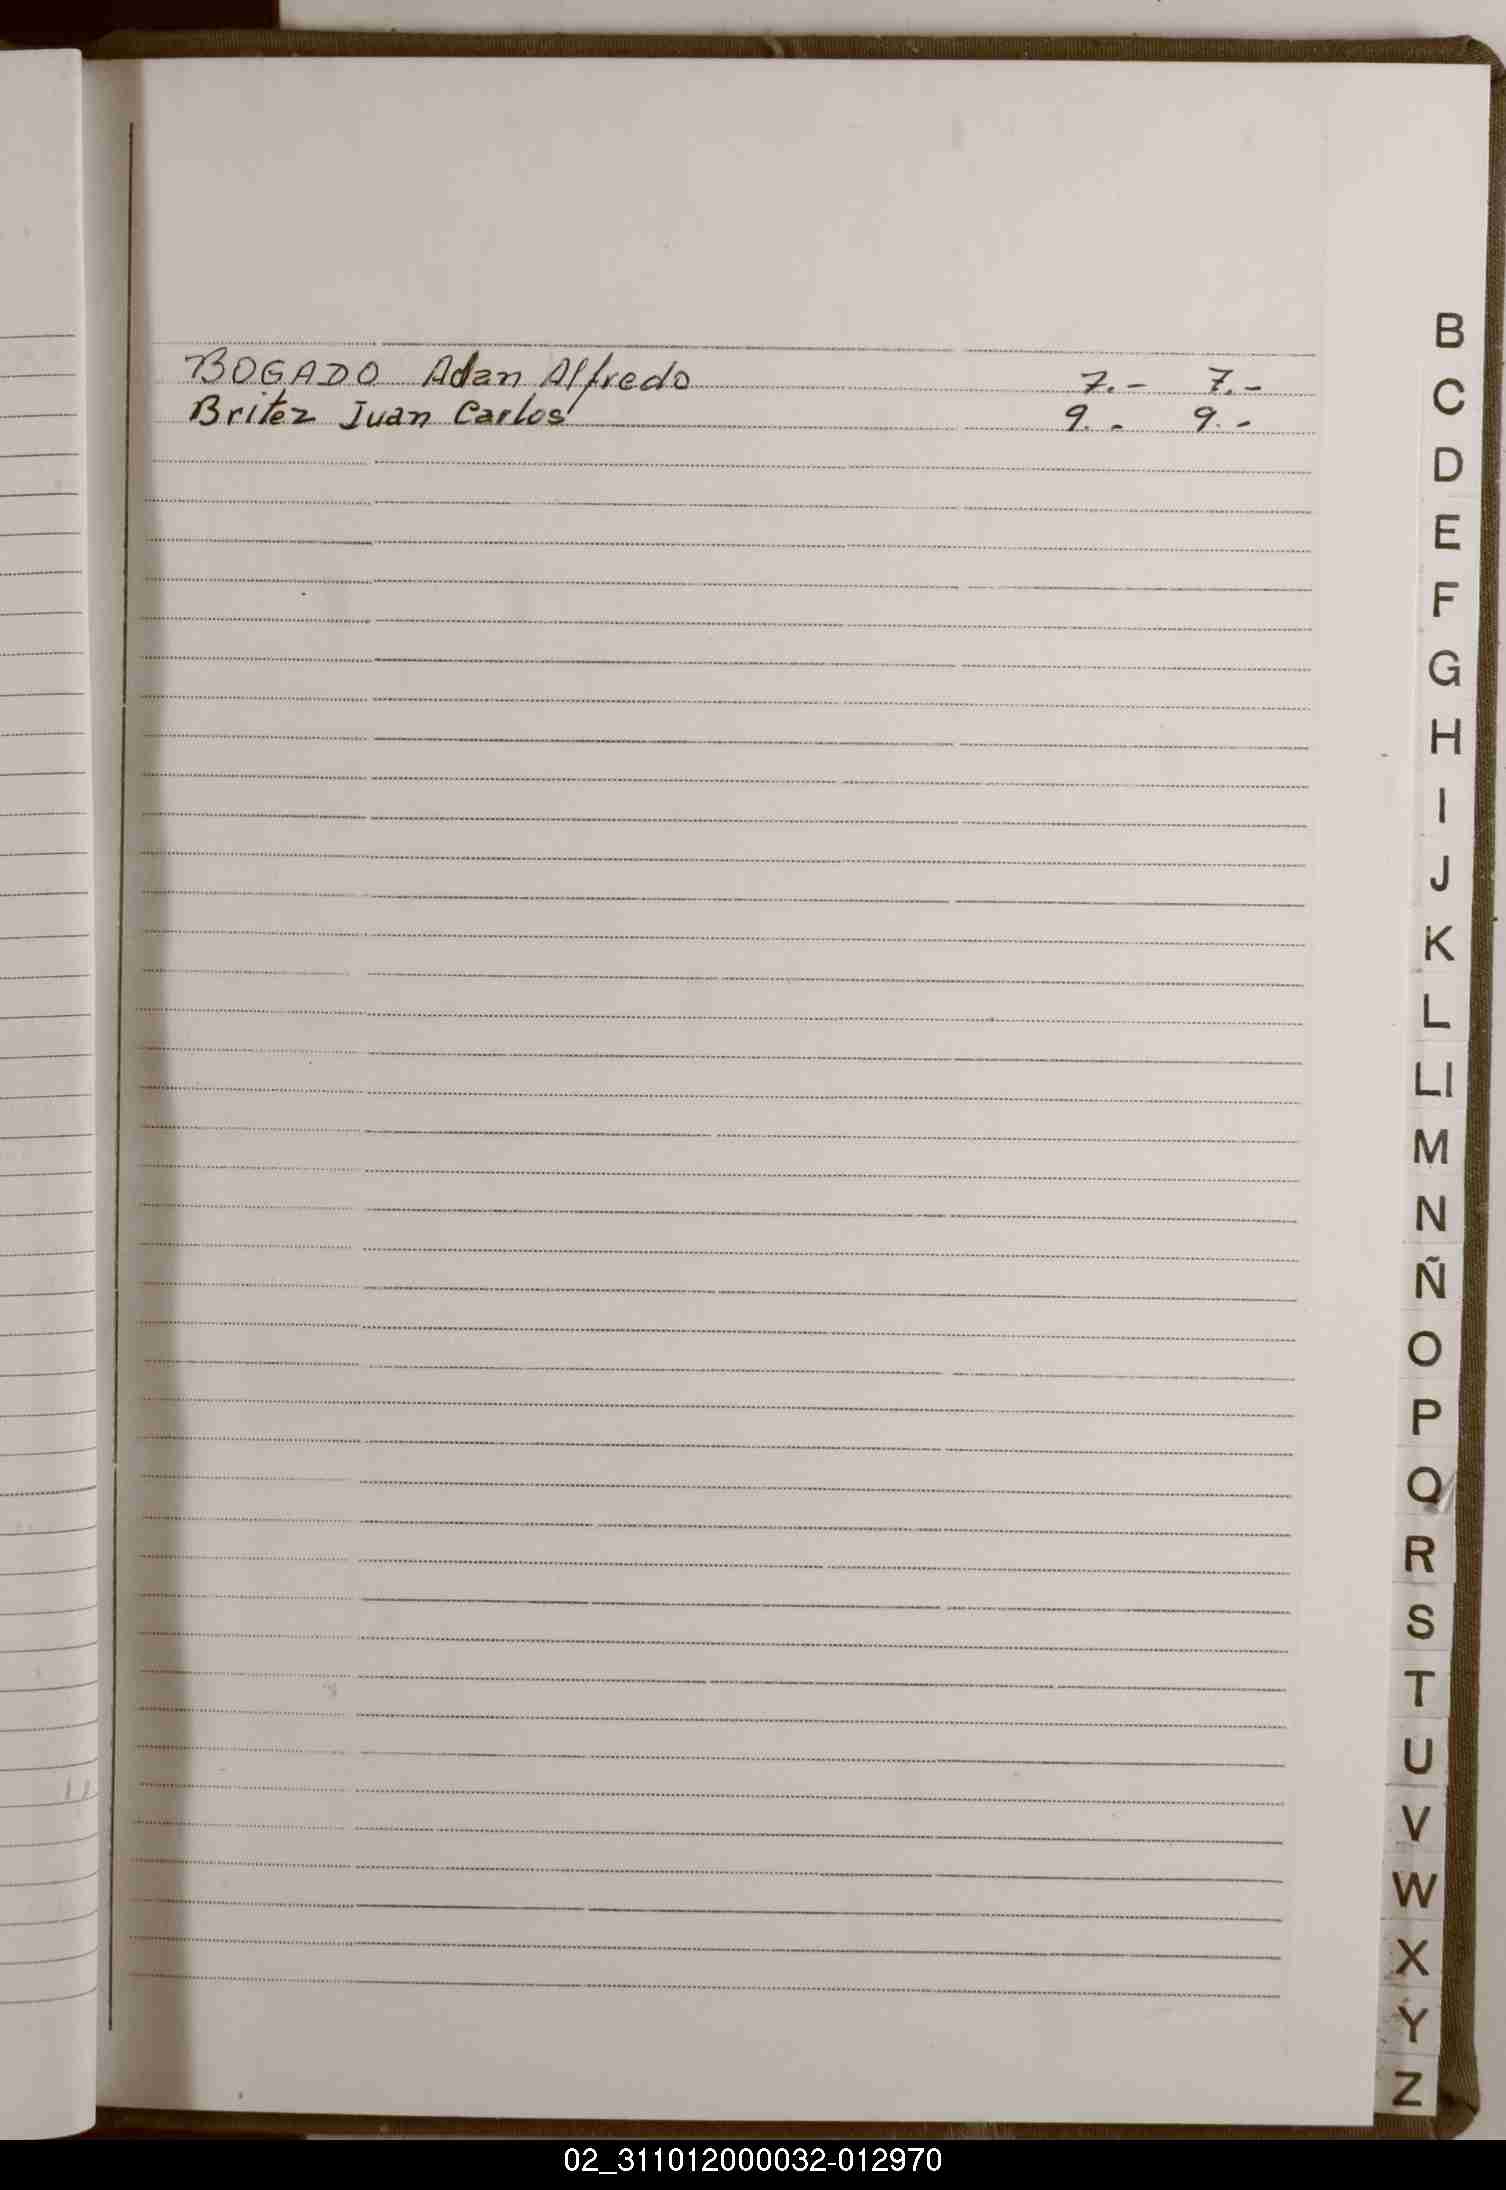 BOGADO Adan Alfredo 7.- 7.-
Britez Juan Carlos 9.- 9.-
B
C
D
E
F
G
H
I
J
K
L
Ll
M
N
Ñ
O
P
Q
R
S
T
U
V
W
X
Y
Z
02_311012000032-012970